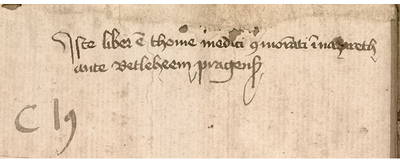 Iste liber ē thome medici 9morati ī nazareth
ante Betleheem pragenſ
C 19